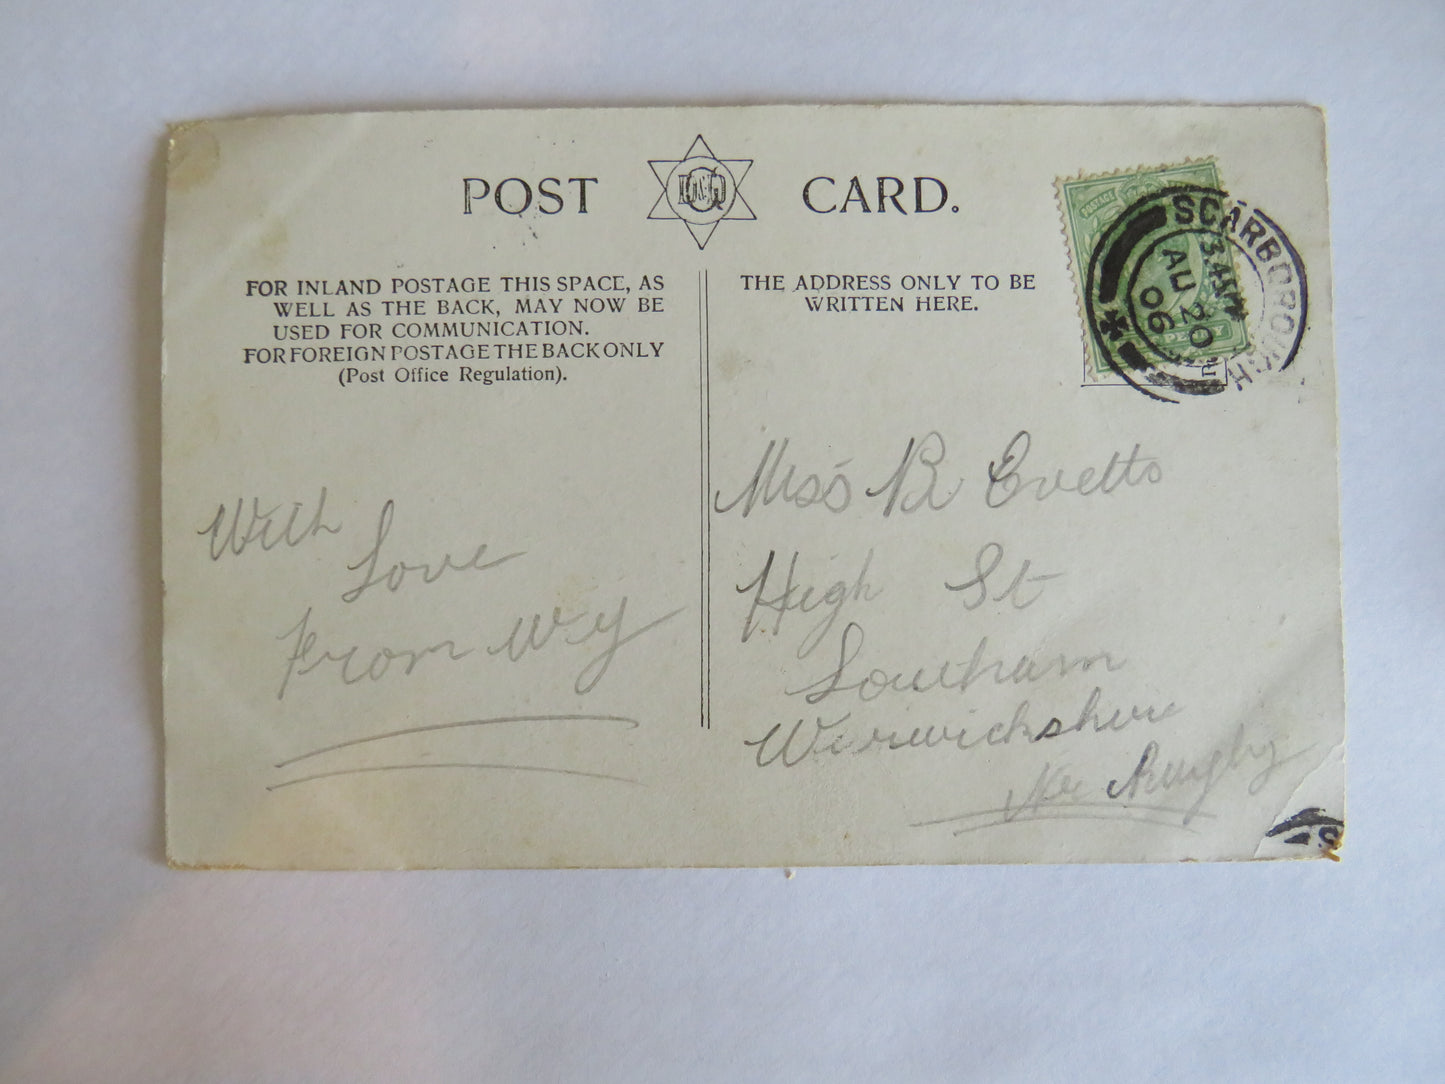 POST CARD.
FOR INLAND POSTAGE THIS SPACE, AS
WELL AS THE BACK, MAY NOW BE
USED FOR COMMUNICATION.
FOR FOREIGN POSTAGE THE BACK ONLY
(Post Office Regulation).
THE ADDRESS ONLY TO BE
WRITTEN HERE.
POSTAGE
SCARBOROUGH
AU 20
06
With
Love
From
Miss B Evetts
High St
Southam
Warwickshire
Nr Rugby
S